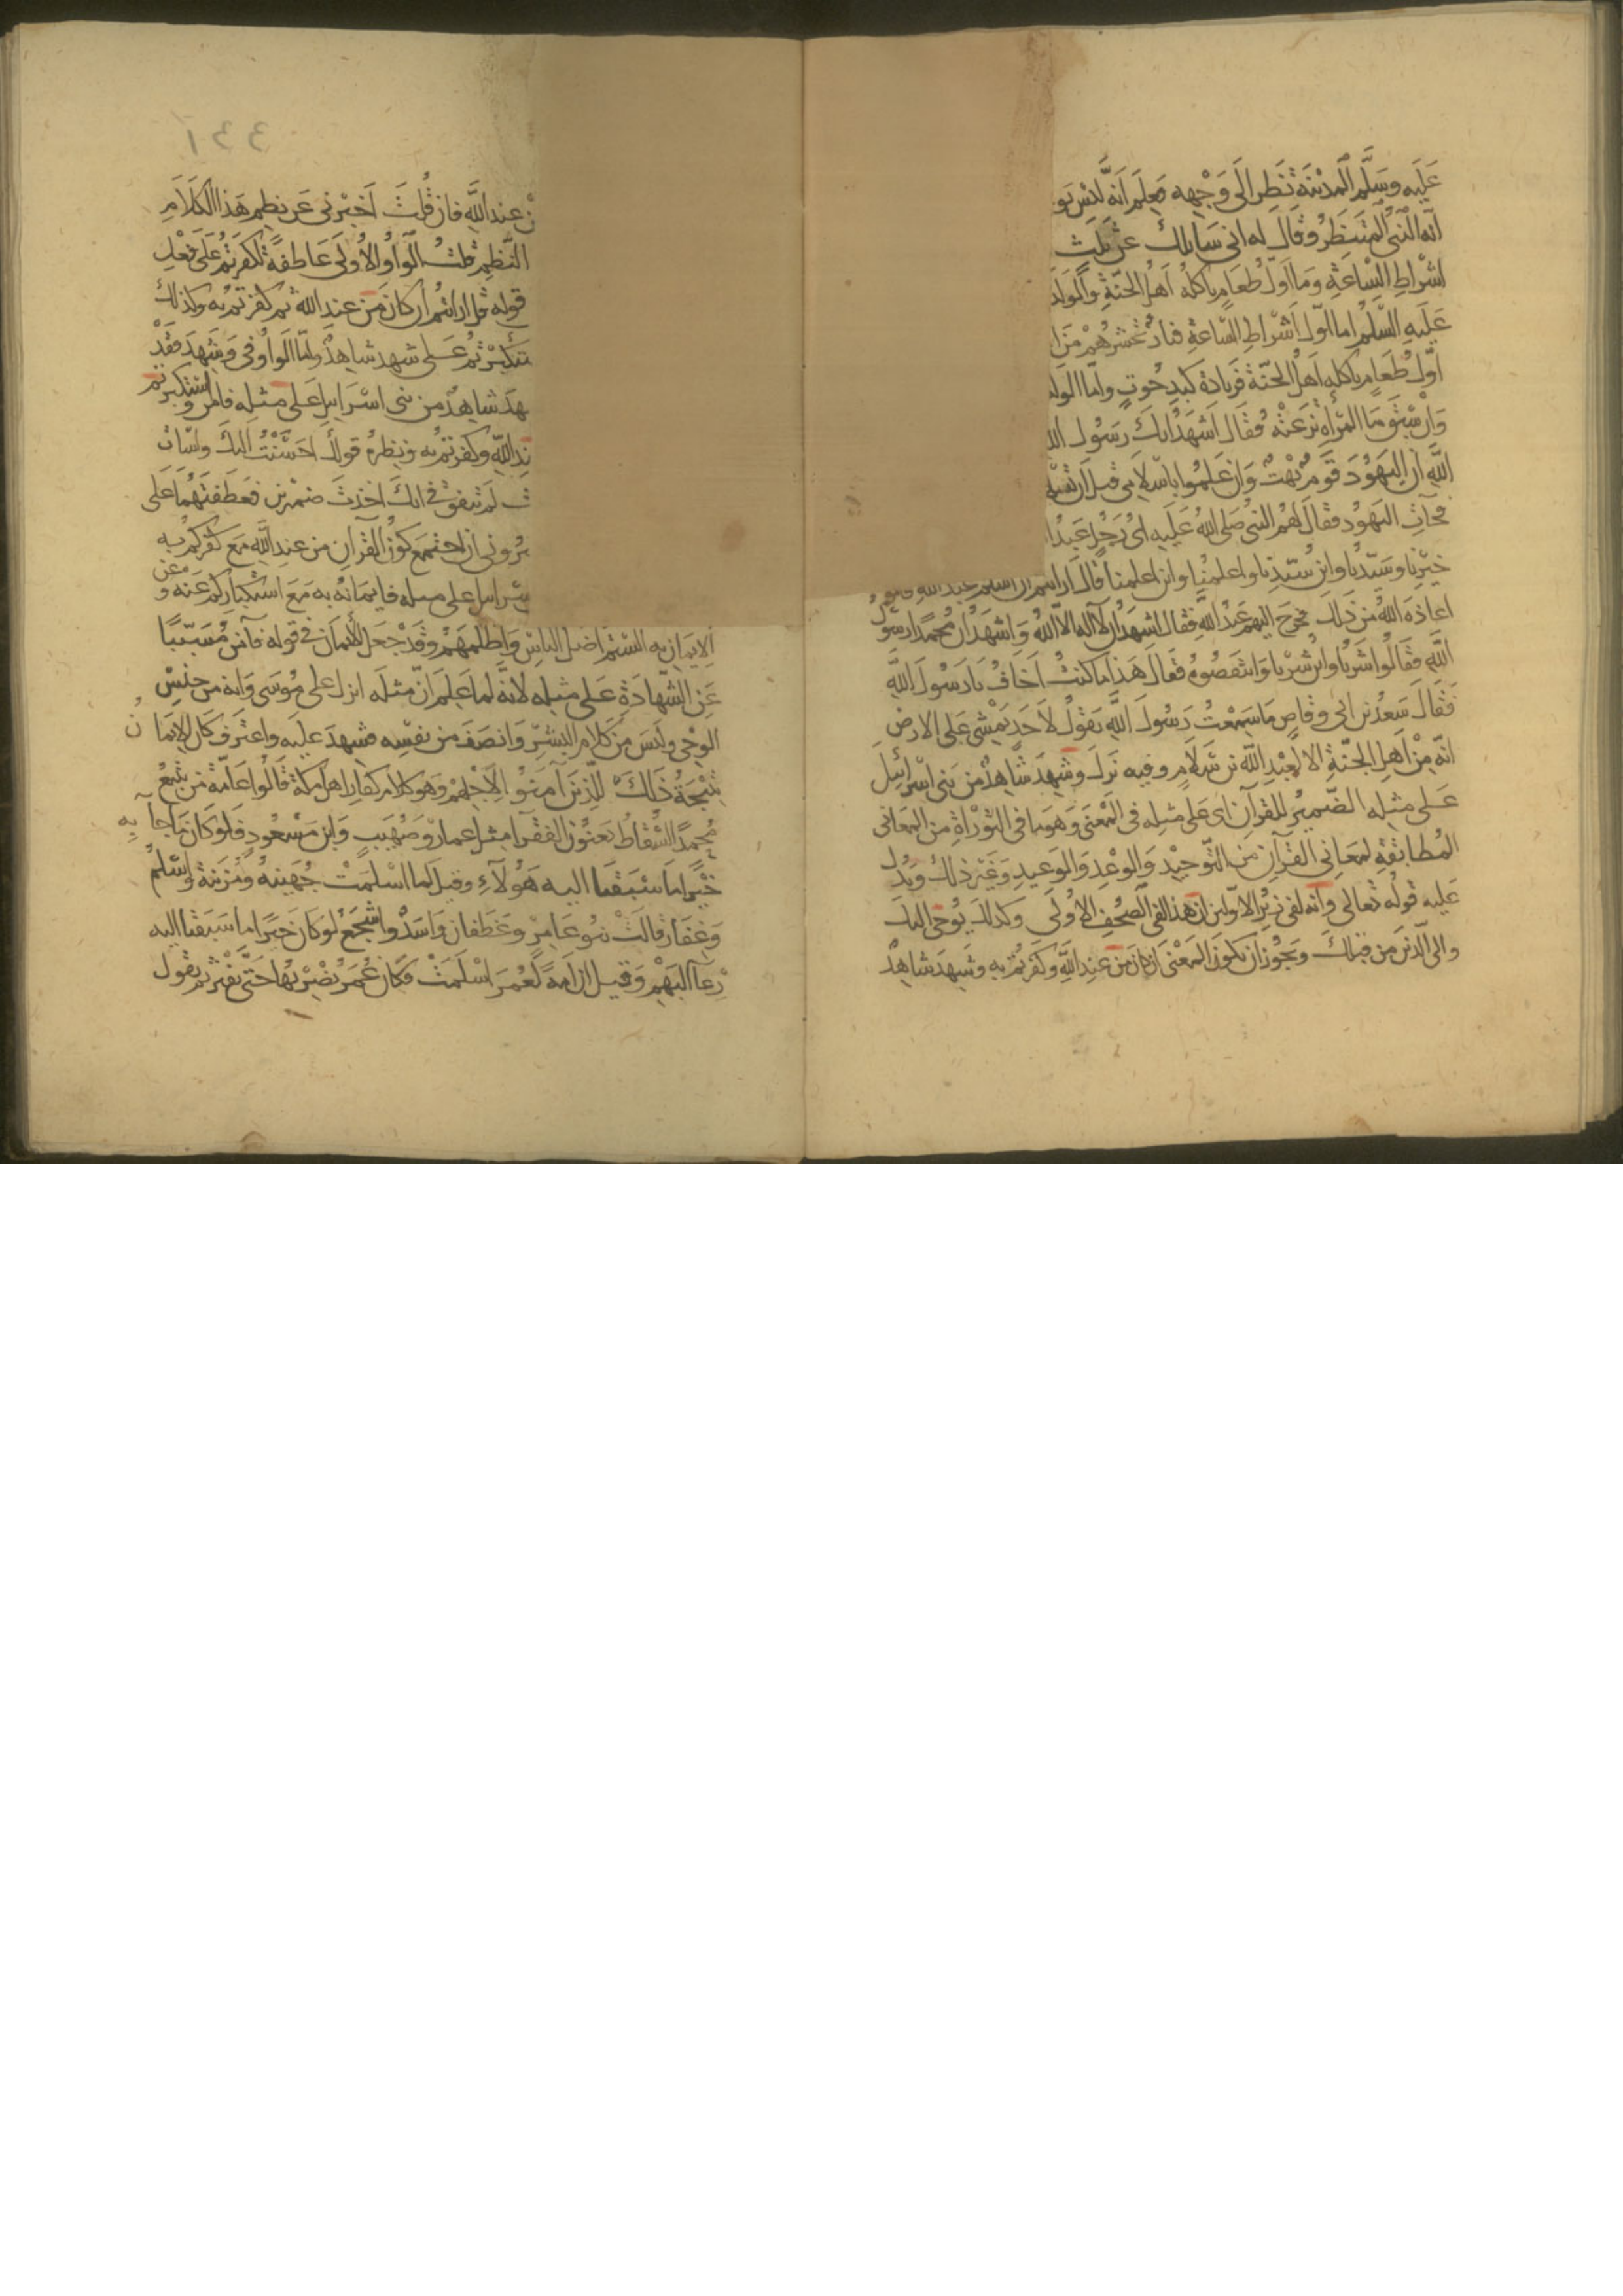 عليه وسلم المدينة نظر الى وجهه فعلم انه ليس بو
انه النبي المنتظر وقال له اني سايلك عن ثلث
اشراط الساعة وما اول طعام ياكله اهل الجنة والولد
عليه السلم اما اول اشراط الساعة فنار تحشرهم من
اول طعام ياكله اهل الجنة فزيادة كبد حوت واما الولد
وان سبق ما المرأة نزعته فقال اشهد انك رسول الله
الله ان اليهود قوم بهت وان علموا باسلامي قبل ان تسلهم
فجات اليهود فقال لهم النبي صلى الله عليه اي رجل عبد ا
خيرنا وسيدنا وابن سيدنا واعلمنا وابن اعلمنا قال ارايتم ان اسلم عبد الله قالوا
اعاذه الله من ذلك فخرج اليهم عبد الله فقال اشهد ان لا اله الا الله واشهد ان محمدا رسول
الله فقالوا شرنا وابن شرنا وانتقصوه فقال هذا ما كنت اخاف يا رسول الله
فقال سعد بن ابي وقاص ما سمعت رسول الله يقول لاحد يمشي على الارض
انه من اهل الجنة الا لعبد الله بن سلام وفيه نزل وشهد شاهد من بني اسرائيل
على مثله الضمير للقرآن اي على مثله في المعنى وهو ما في التوراة من المعاني
المطابقة لمعاني القرآن من التوحيد والوعد والوعيد وغير ذلك ويدل
عليه قوله تعالى وانه لفي زبر الاولين ان هذا لفي الصحف الاولى وكذلك يوحى اليك
والى الذين من قبلك ويجوز ان يكون المعنى ان كان من عند الله وكفرتم به وشهد شاهد
١٤٤
ن عند الله فان قلت اخبرني عن نظم هذا الكلام
النظم قلت الواو الاولى عاطفة لكفرتم على فعل
قوله قل ارايتم ان كان من عند الله ثم كفرتم به وكذلك
ستكبرتم على شهد شاهد واما الواو في وشهد فقد
هد شاهد من بني اسرايل على مثله فامن واستكبرتم
ند الله وكفرتم به ونظيره قولك احسنت اليك واسات
ت لم نتفق في انك اخذت ضميرين فعطفتهما على
بروني ان اجتمع كون القرآن من عند الله مع كفركم به
سرايل على مثله فايمانه به مع استكباركم عنه وعن
الايمان به الستم اضل الناس واظلمهم وقد جعل الايمان في قوله فآمن مسببا
عن الشهادة على مثله لانه لما علم ان مثله انزل على موسى وانه من جنس
الوحي وليس من كلام البشر وانصف من نفسه فشهد عليه واعترف كان الايمان
نتيجة ذلك للذين آمنوا لاجلهم وهو كلام كفار اهل مكة قالوا عامة من يتبع
محمدا السقاط يعنون الفقرا مثل عمار وصهيب وابن مسعود فلو كان ما جآ به
خيرا ما سبقنا اليه هولآء وقيل لما اسلمت جهينه ومزينة واسلم
وغفار قالت بنو عامر وغطفان واسد واشجع لو كان خيرا ما سبقنا اليه
رعآ البهم وقيل ان امة لعمر اسلمت فكان عمر يضربها حتى يفتر ثم يقول